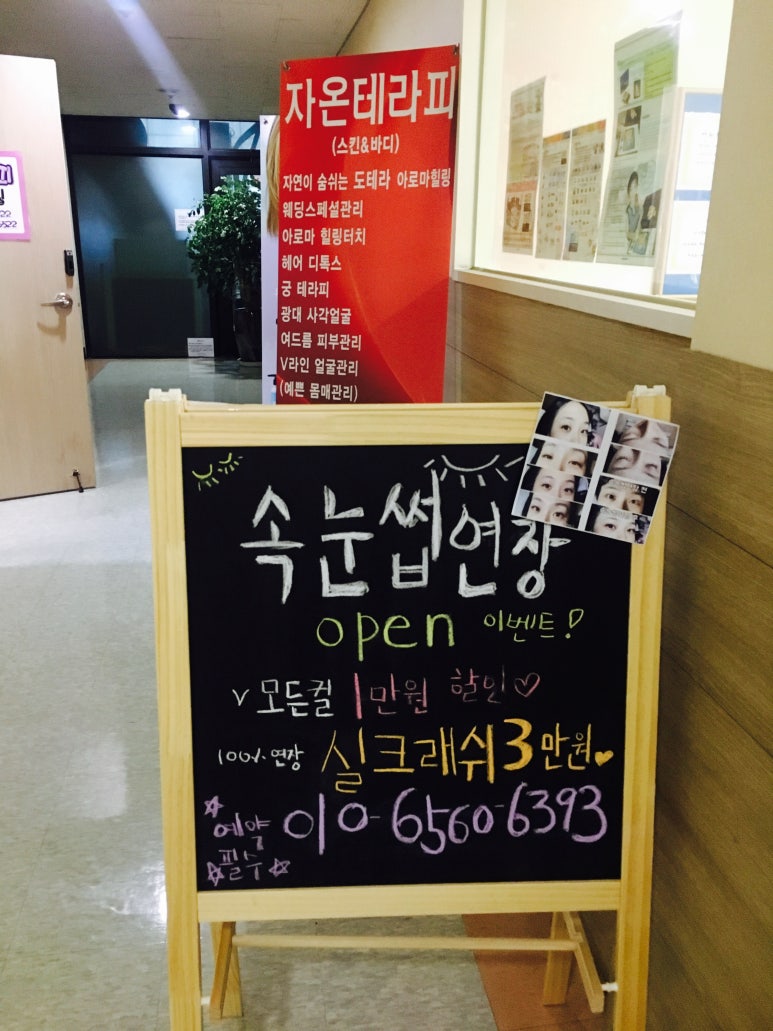 자온테라피
(스킨&바디)
자연이 숨쉬는 도테라 아로마힐링
웨딩스페셜관리
아로마 힐링터치
헤어 디톡스
궁 테라피
광대 사각얼굴
여드름 피부관리
V라인 얼굴관리
(예쁜 몸매관리)
속눈썹연장
open 이벤트!
v 모든컬 1만원 할인♡
100% 연장 실크래쉬 3만원♥
☆예약필수☆ 010-6560-6393